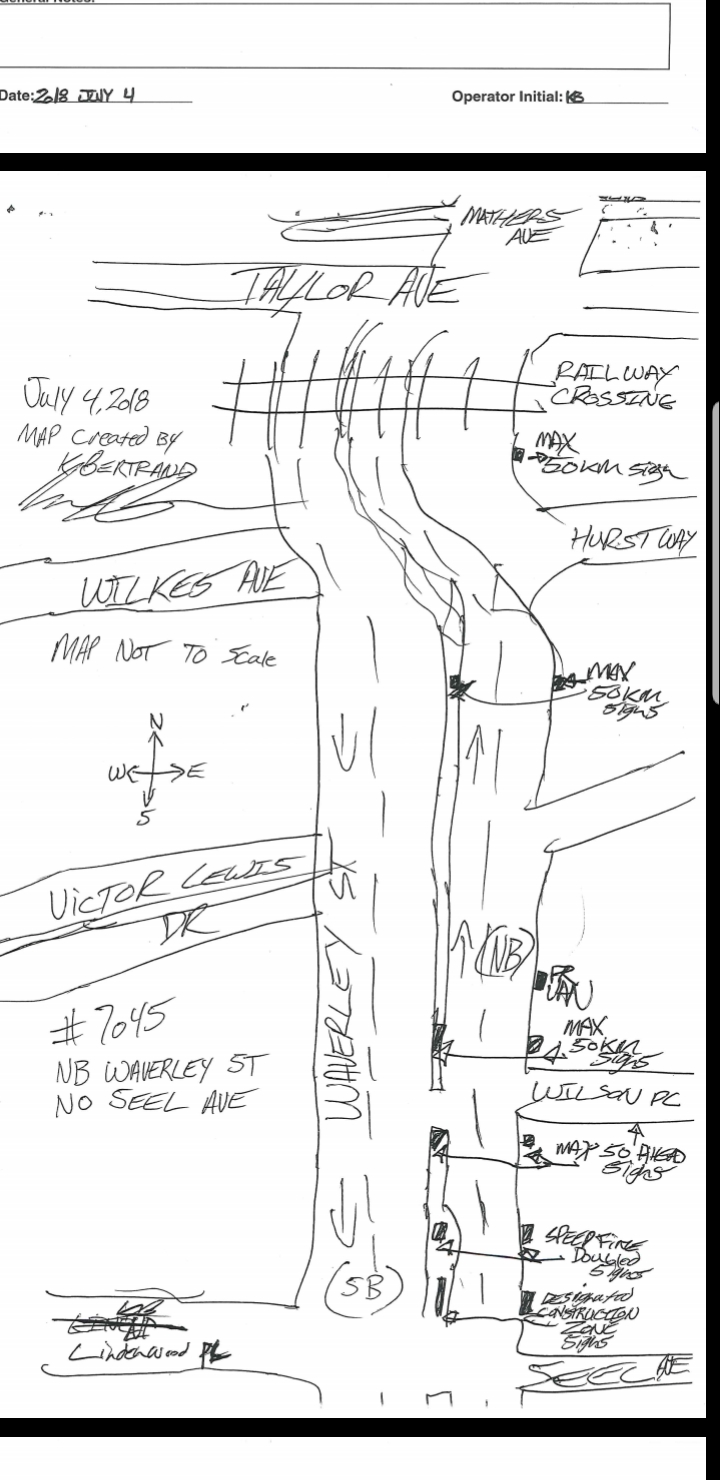 General Notes:
Date: 2018 JULY 4
Operator Initial: KB
MATHERS
AVE
TAYLOR AVE
RAILWAY
CROSSING
July 4, 2018
MAP Created By
KBERTRAND
MAX
50KM Sign
HURST WAY
WILKES AVE
MAP NOT TO Scale
MAX
50KM
Signs
N
W E
S
VICTOR LEWIS
DR
WAVERLEY ST
(NB)
PR
VAN
#7045
NB WAVERLEY ST
NO SEEL AVE
MAX
50KM
Signs
WILSON PL
MAX 50 AHEAD
Signs
SPEED FINE
Doubled
Signs
(SB)
Designated
CONSTRUCTION
ZONE
Signs
Lindenwood PL
SEEL AVE